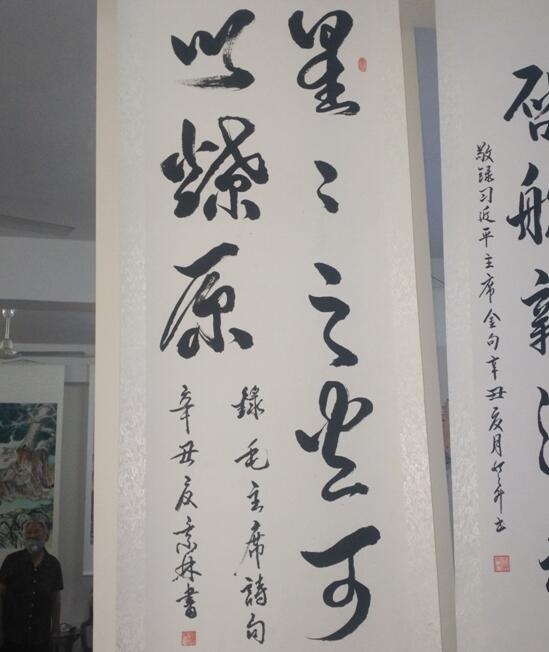 启航新
敬録习近平主席金句辛丑夏月
星〻之火可
以燎原
録毛主席詩句
辛丑夏景林書